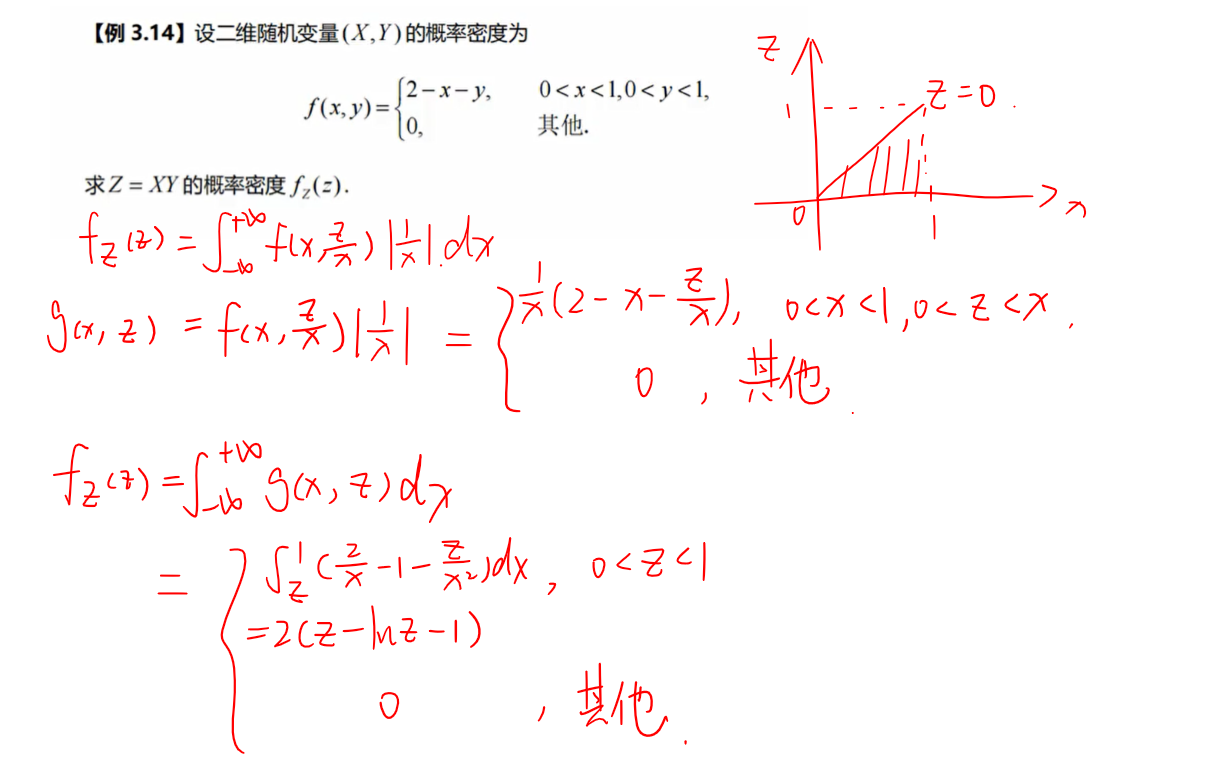 【例 3.14】设二维随机变量(X,Y)的概率密度为
f(x,y)={2-x-y, 0<x<1,0<y<1,
0, 其他.
求Z=XY的概率密度f_Z(z).
z
1
z=0.
0
1
x
f_Z(z)=∫_{-∞}^{+∞} f(x,z/x)|1/x|.dx
g(x,z)=f(x,z/x)|1/x|={1/x(2-x-z/x), 0<x<1,0<z<x.
0, 其他.
f_Z(z)=∫_{-∞}^{+∞} g(x,z)dx
={∫_z^1(2/x-1-z/x²)dx, 0<z<1
=2(z-lnz-1)
0, 其他.